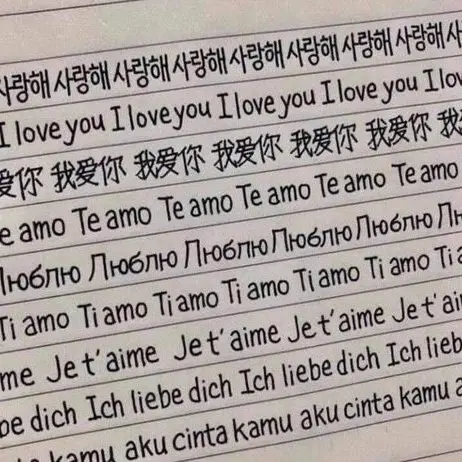 사랑해 사랑해 사랑해 사랑해 사랑해 사랑해 사랑해 사랑해
I love you I love you I love you I love you I lov
爱你 我爱你 我爱你 我爱你 我爱你 我爱你 我
e amo Te amo Te amo Te amo Te amo Te amo
Люблю Люблю Люблю Люблю Люблю
Ti amo Ti amo Ti amo Ti amo Ti amo Ti amo Ti
me Je t'aime Je t'aime Je t'aime Je t'aime
be dich Ich liebe dich Ich liebe dich Ich lieb
kamu aku cinta kamu aku cinta kamu a